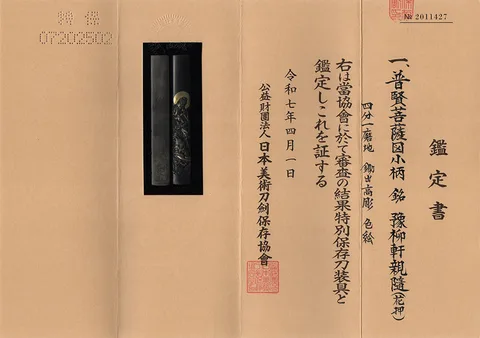 鑑定書
一、普賢菩薩図小柄 銘 豫柳軒親随(花押)
四分一磨地 鋤出高彫 色絵
右は當協會に於て審査の結果特別保存刀装具と
鑑定しこれを証する
令和七年四月一日
公益財團法人 日本美術刀劍保存協會
№ 2011427
特保
07202502